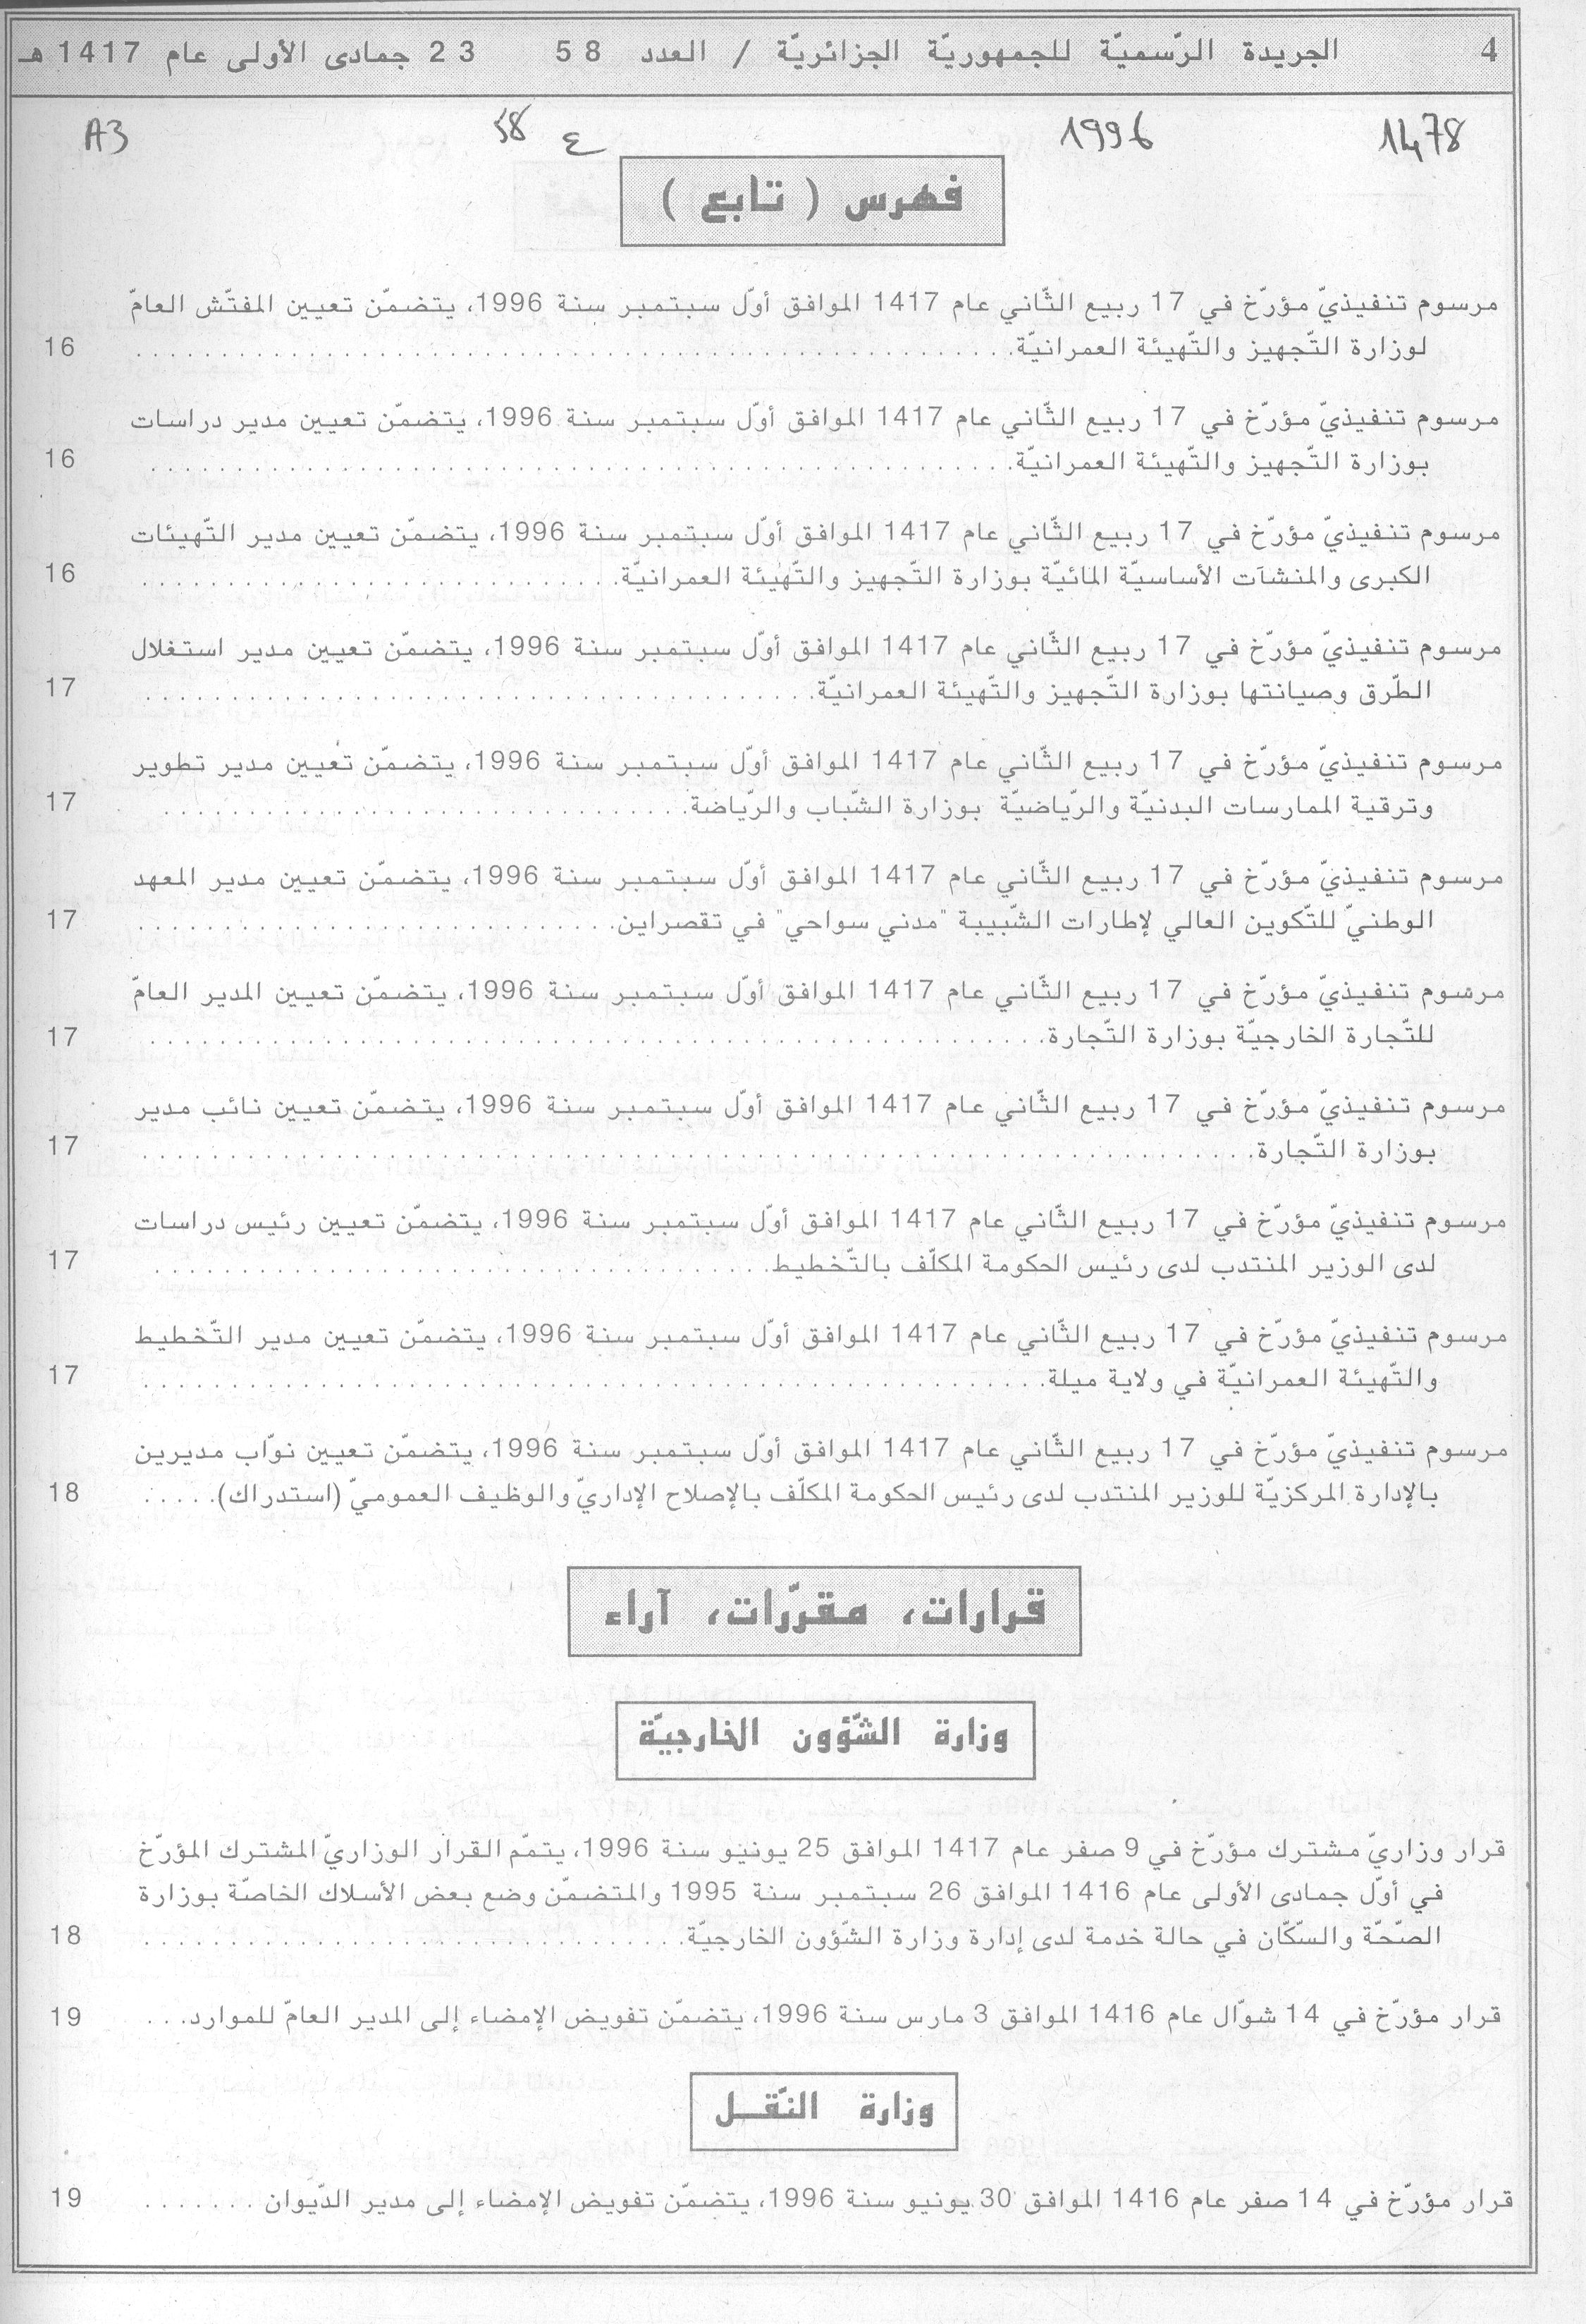 4 الجريدة الرّسميّة للجمهوريّة الجزائريّة / العدد 58 23 جمادى الأولى عام 1417 هـ
1478 1996 ع 58 A3
فهرس ( تابع )
مرسوم تنفيذيّ مؤرّخ في 17 ربيع الثّاني عام 1417 الموافق أوّل سبتمبر سنة 1996، يتضمّن تعيين المفتّش العامّ
لوزارة التّجهيز والتّهيئة العمرانيّة. . . . . . . . . . . . . . . . . . . . 16
مرسوم تنفيذيّ مؤرّخ في 17 ربيع الثّاني عام 1417 الموافق أوّل سبتمبر سنة 1996، يتضمّن تعيين مدير دراسات
بوزارة التّجهيز والتّهيئة العمرانيّة. . . . . . . . . . . . . . . . . . . . 16
مرسوم تنفيذيّ مؤرّخ في 17 ربيع الثّاني عام 1417 الموافق أوّل سبتمبر سنة 1996، يتضمّن تعيين مدير التّهيئات
الكبرى والمنشآت الأساسيّة المائيّة بوزارة التّجهيز والتّهيئة العمرانيّة. . . . . . . . . . . . 16
مرسوم تنفيذيّ مؤرّخ في 17 ربيع الثّاني عام 1417 الموافق أوّل سبتمبر سنة 1996، يتضمّن تعيين مدير استغلال
الطّرق وصيانتها بوزارة التّجهيز والتّهيئة العمرانيّة. . . . . . . . . . . . . . . . 17
مرسوم تنفيذيّ مؤرّخ في 17 ربيع الثّاني عام 1417 الموافق أوّل سبتمبر سنة 1996، يتضمّن تعيين مدير تطوير
وترقية الممارسات البدنيّة والرّياضيّة بوزارة الشّباب والرّياضة. . . . . . . . . . . . . 17
مرسوم تنفيذيّ مؤرّخ في 17 ربيع الثّاني عام 1417 الموافق أوّل سبتمبر سنة 1996، يتضمّن تعيين مدير المعهد
الوطنيّ للتّكوين العالي لإطارات الشّبيبة "مدني سواحي" في تقصراين. . . . . . . . . . . . 17
مرسوم تنفيذيّ مؤرّخ في 17 ربيع الثّاني عام 1417 الموافق أوّل سبتمبر سنة 1996، يتضمّن تعيين المدير العامّ
للتّجارة الخارجيّة بوزارة التّجارة. . . . . . . . . . . . . . . . . . . . 17
مرسوم تنفيذيّ مؤرّخ في 17 ربيع الثّاني عام 1417 الموافق أوّل سبتمبر سنة 1996، يتضمّن تعيين نائب مدير
بوزارة التّجارة. . . . . . . . . . . . . . . . . . . . . . . . 17
مرسوم تنفيذيّ مؤرّخ في 17 ربيع الثّاني عام 1417 الموافق أوّل سبتمبر سنة 1996، يتضمّن تعيين رئيس دراسات
لدى الوزير المنتدب لدى رئيس الحكومة المكلّف بالتّخطيط. . . . . . . . . . . . . . . 17
مرسوم تنفيذيّ مؤرّخ في 17 ربيع الثّاني عام 1417 الموافق أوّل سبتمبر سنة 1996، يتضمّن تعيين مدير التّخطيط
والتّهيئة العمرانيّة في ولاية ميلة. . . . . . . . . . . . . . . . . . . . 17
مرسوم تنفيذيّ مؤرّخ في 17 ربيع الثّاني عام 1417 الموافق أوّل سبتمبر سنة 1996، يتضمّن تعيين نوّاب مديرين
بالإدارة المركزيّة للوزير المنتدب لدى رئيس الحكومة المكلّف بالإصلاح الإداريّ والوظيف العموميّ (استدراك). . . . . 18
قرارات، مقرّرات، آراء
وزارة الشّؤون الخارجيّة
قرار وزاريّ مشترك مؤرّخ في 9 صفر عام 1417 الموافق 25 يونيو سنة 1996، يتمّم القرار الوزاريّ المشترك المؤرّخ
في أوّل جمادى الأولى عام 1416 الموافق 26 سبتمبر سنة 1995 والمتضمّن وضع بعض الأسلاك الخاصّة بوزارة
الصّحّة والسّكّان في حالة خدمة لدى إدارة وزارة الشّؤون الخارجيّة. . . . . . . . . . . . . 18
قرار مؤرّخ في 14 شوّال عام 1416 الموافق 3 مارس سنة 1996، يتضمّن تفويض الإمضاء إلى المدير العامّ للموارد. . . 19
وزارة النّقـل
قرار مؤرّخ في 14 صفر عام 1416 الموافق 30 يونيو سنة 1996، يتضمّن تفويض الإمضاء إلى مدير الدّيوان . . . . . . . 19